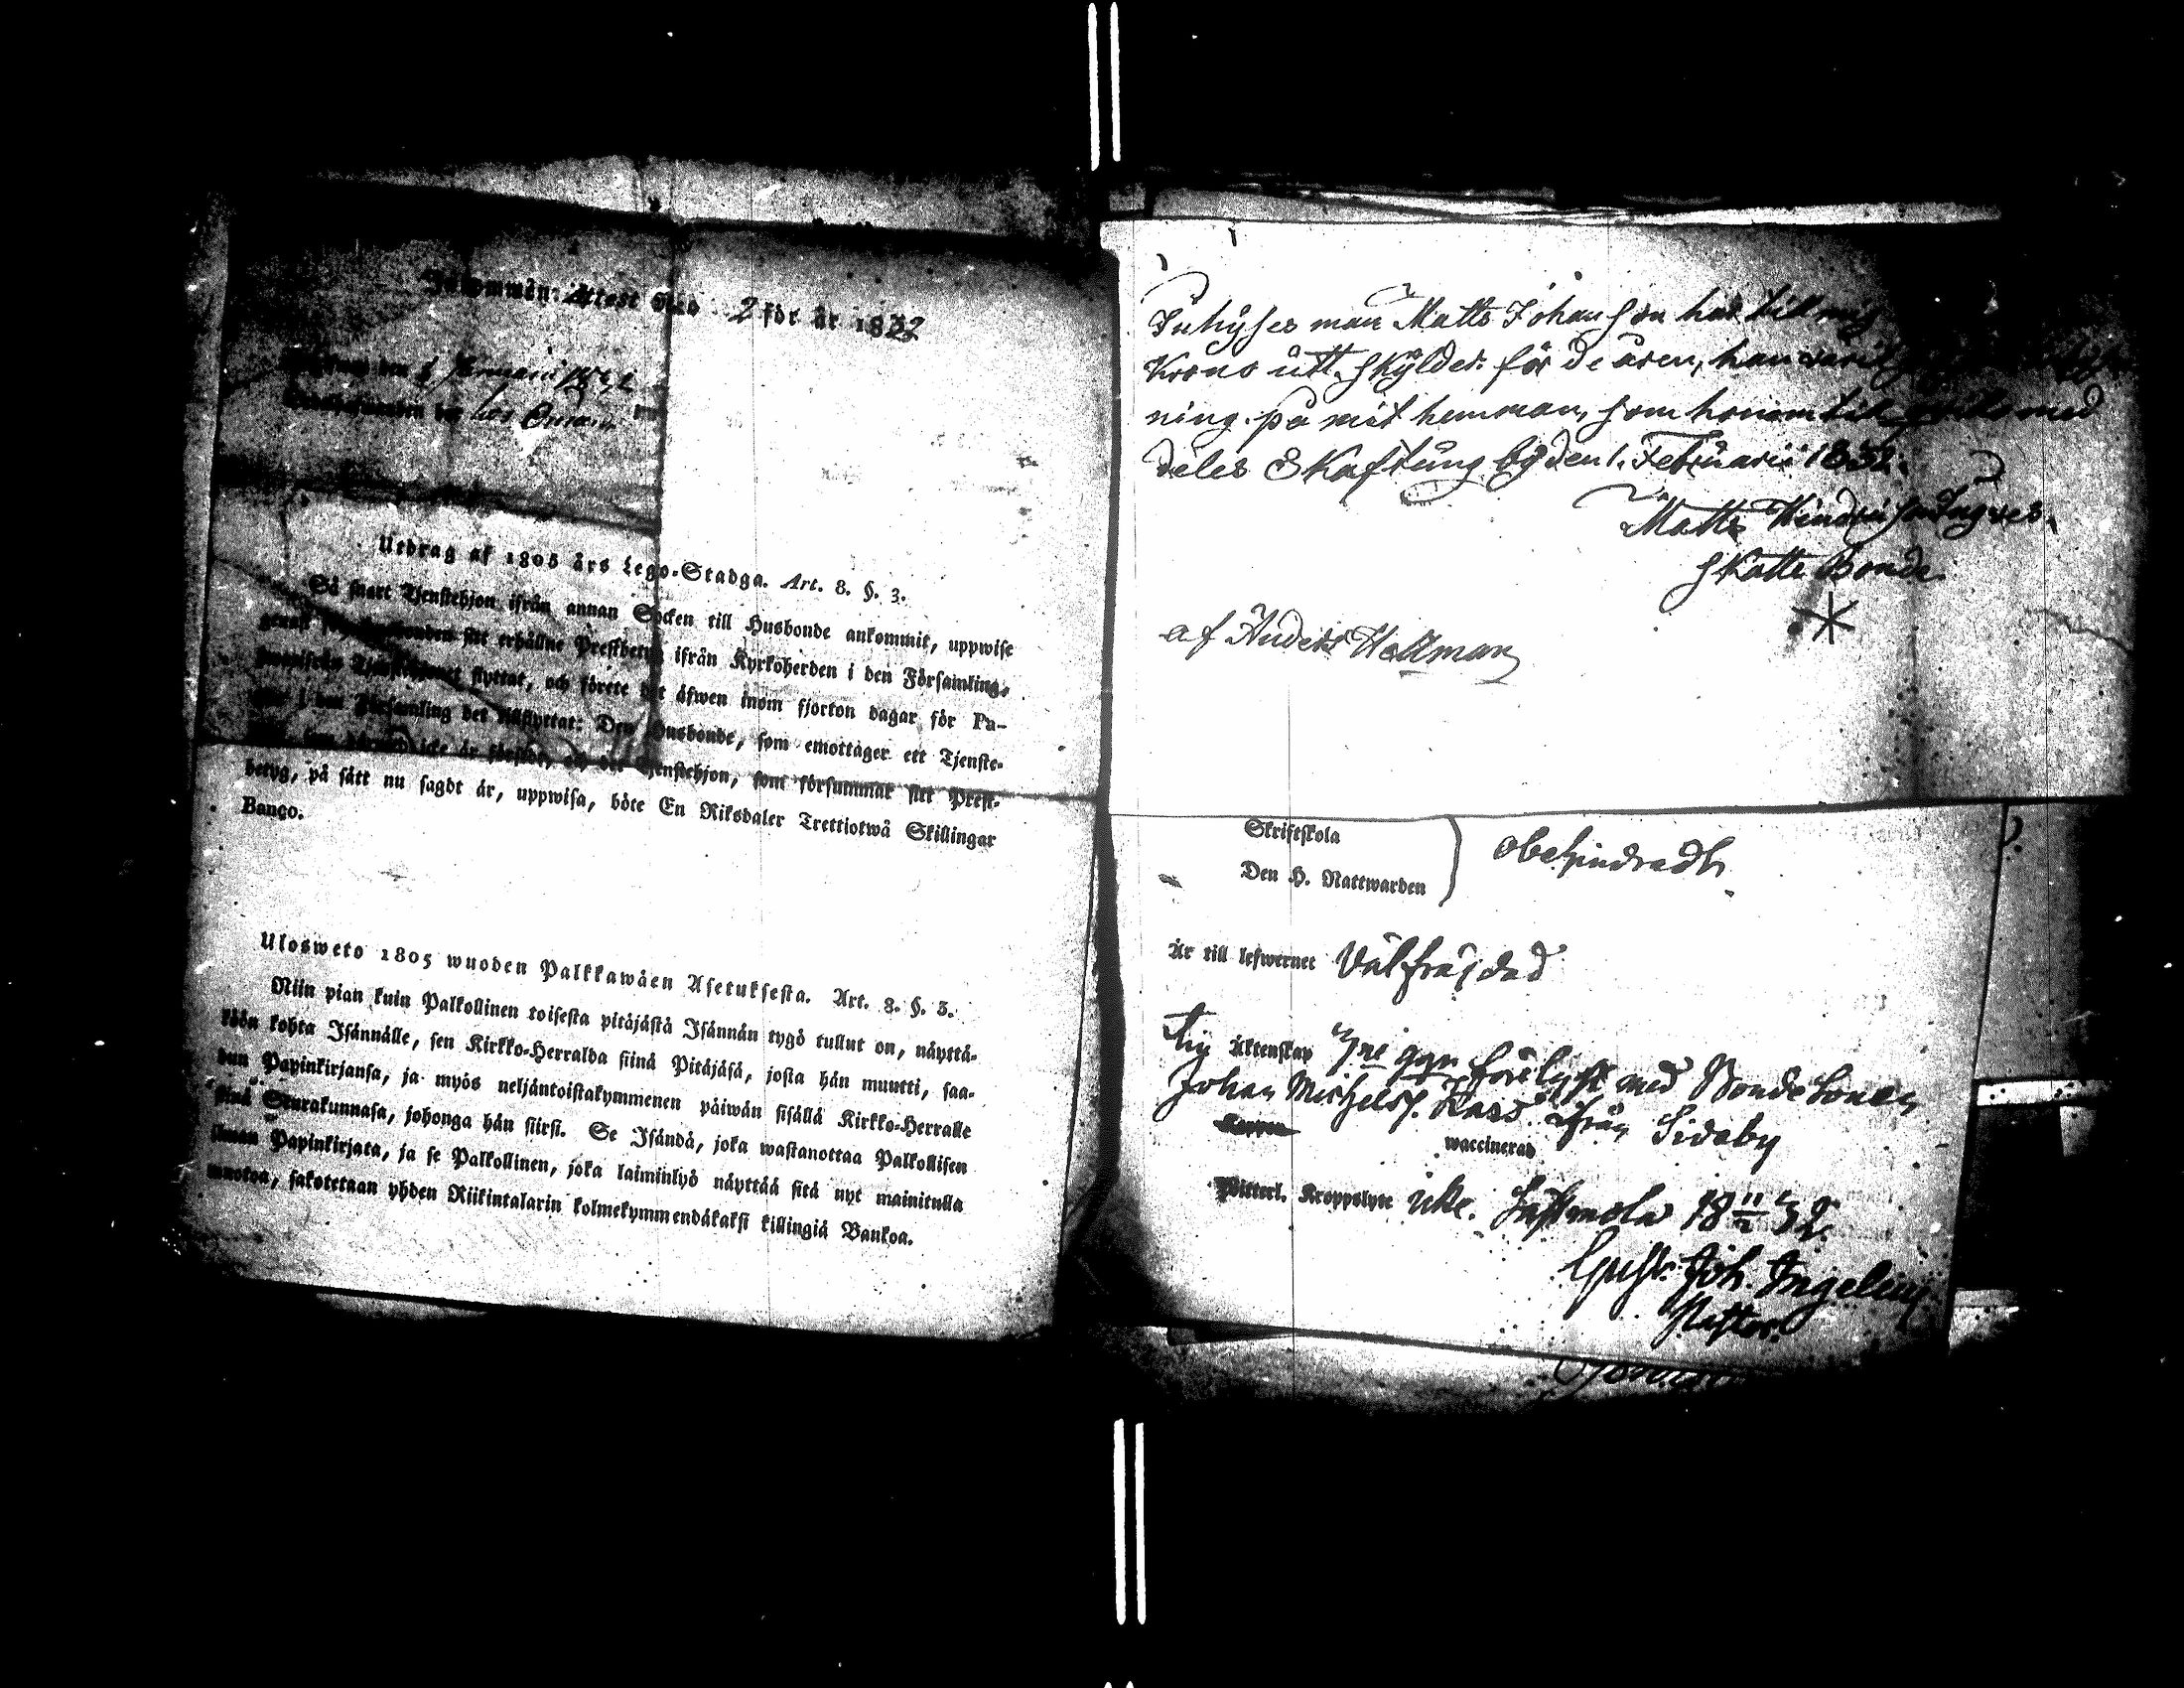 Attest No 2 för år 1832
den 1 Januarii 1832
hos
Utdrag af 1805 års Lego-Stadga. Art. 8. §. 3.
Så snart Tjenstehjon ifrån annan Socken till Husbonde ankommit, uppwise
genast för Husbonden sitt erhållne Prestbetyg ifrån Kyrkoherden i den Församling,
hwarifrån Tjenstehjonet flyttat, och förete det äfwen inom fjorton dagar för Pa-
stor i den Församling det tillflyttat: Den Husbonde, som emottager ett Tjenste-
hjon, som dermed icke är försedt, och det Tjenstehjon, som försummar sitt Prest-
betyg, på sätt nu sagdt är, uppwisa, böte En Riksdaler Trettiotwå Skillingar
Banco.
Ulosweto 1805 wuoden Palkkawäen Asetuksesta. Art. 8. §. 3.
Niin pian kuin Palkollinen toisesta pitäjästä Isännän tygö tullut on, näyttä-
köön kohta Isännälle, sen Kirkko-Herralda siinä Pitäjäsä, josta hän muutti, saa-
dun Papinkirjansa, ja myös neljäntoistakymmenen päiwän sisällä Kirkko-Herralle
siinä Seurakunnasa, johonga hän siirsi. Se Isändä, joka wastanottaa Palkollisen
ilman Papinkirjata, ja se Palkollinen, joka laiminlyö näyttää sitä nyt mainitulla
muotoa, sakotetaan yhden Riikintalarin kolmekymmendäkaksi killingiä Bankoa.
Inhyses man Matts Johanson har till mig
Krono utt skylder för de åren, han varit
ning på mit hemman, som honom till med
deles Skaftung by den 1. Februarii 1832.
Matts Hindrichson Ingves
Skatte Bonde
af Anders Hollman
Skriftskola
Den H. Nattwarden
obehindradt
Är till lefwernet Välfräjdad
Till Äktenskap 3ne ggr förelyst med Bondesonen
Johan Michelss. Kass ifrån Sideby
Koppor
waccinerad
Witterl. Kroppslyte icke. 18 11/2 32.
Gust. Joh. Ingelius
Pastor.